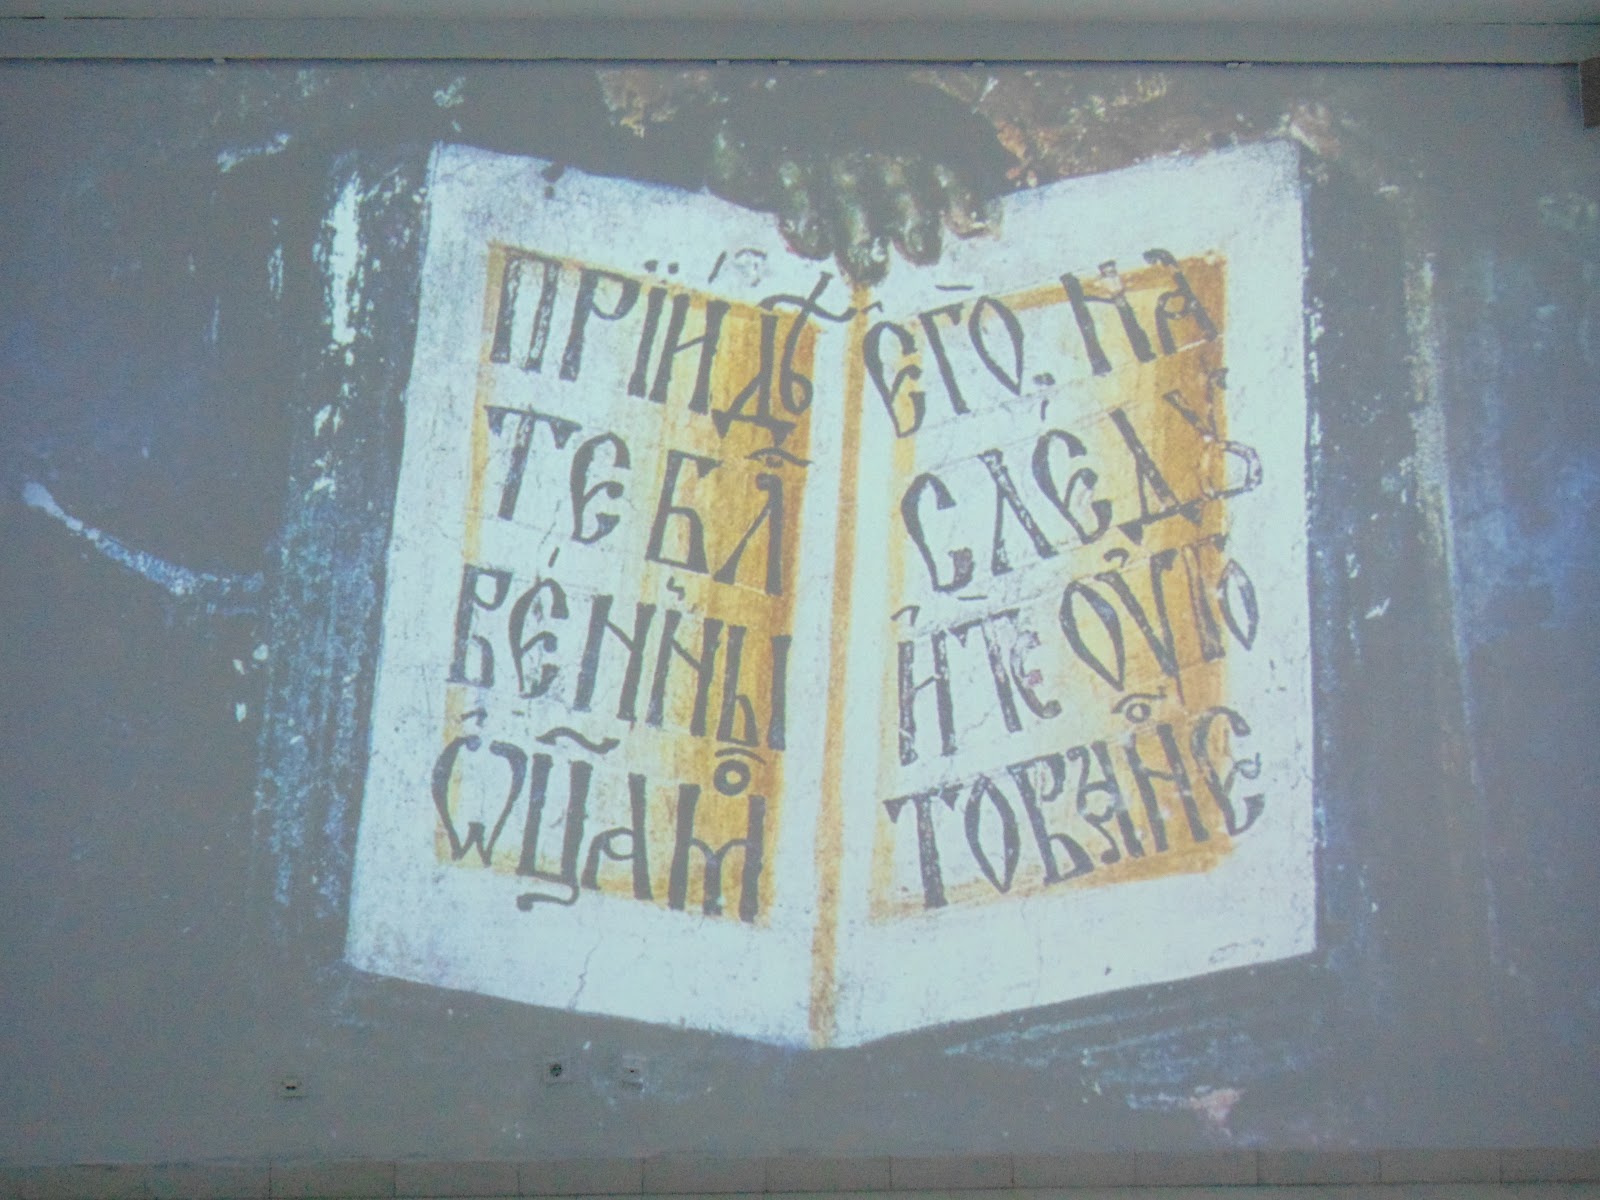 ПРЇИДѢ
ТЕ БЛ҃
ВЕ́ННЫ
ѠЦ҃А Мⷪ
ЕГО̀. НА
СЛЕ́Дꙋ
ИТЕ ОУГО
ТОВАНⷪЕ